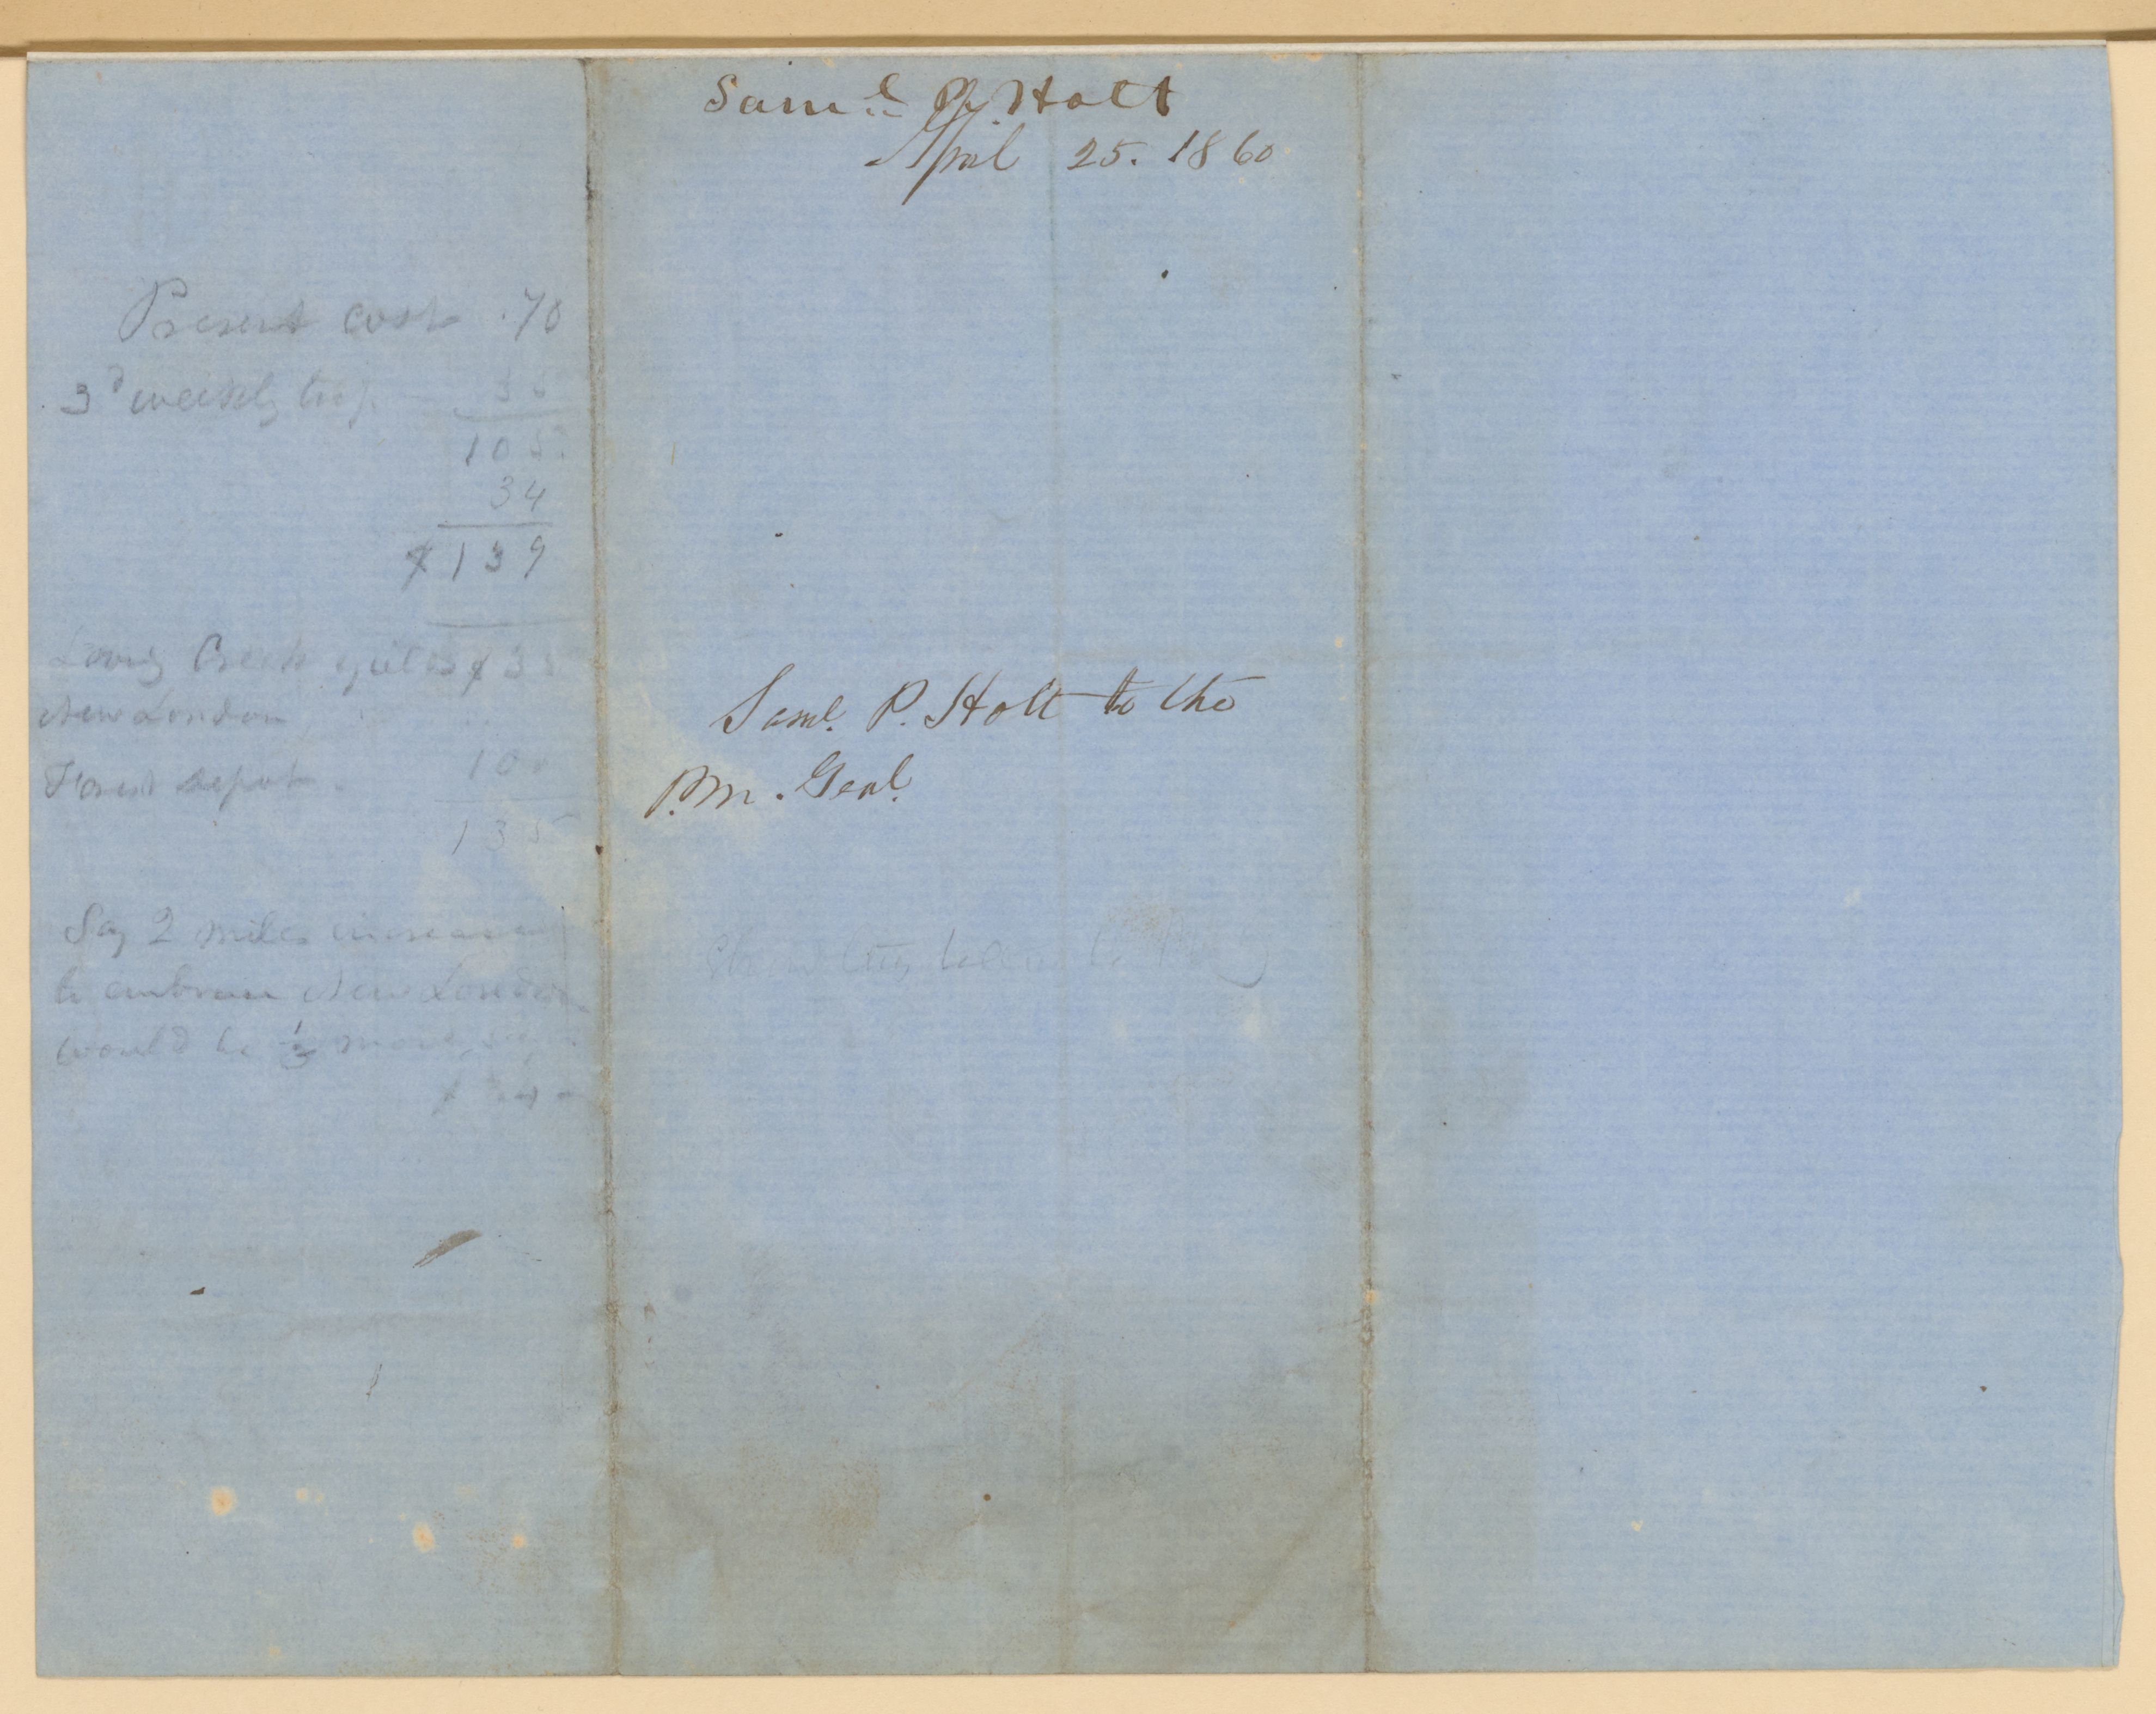 Present cost .70
3d weekly trip 35
105
34
$139
Loving Creek yields $35
New London
Forest Depot 100
135
Say 2 miles increase
to embrace New London
would be more, say
Saml P. Holt
April 25. 1860
Saml. P. Holt to the
P.M. Genl.